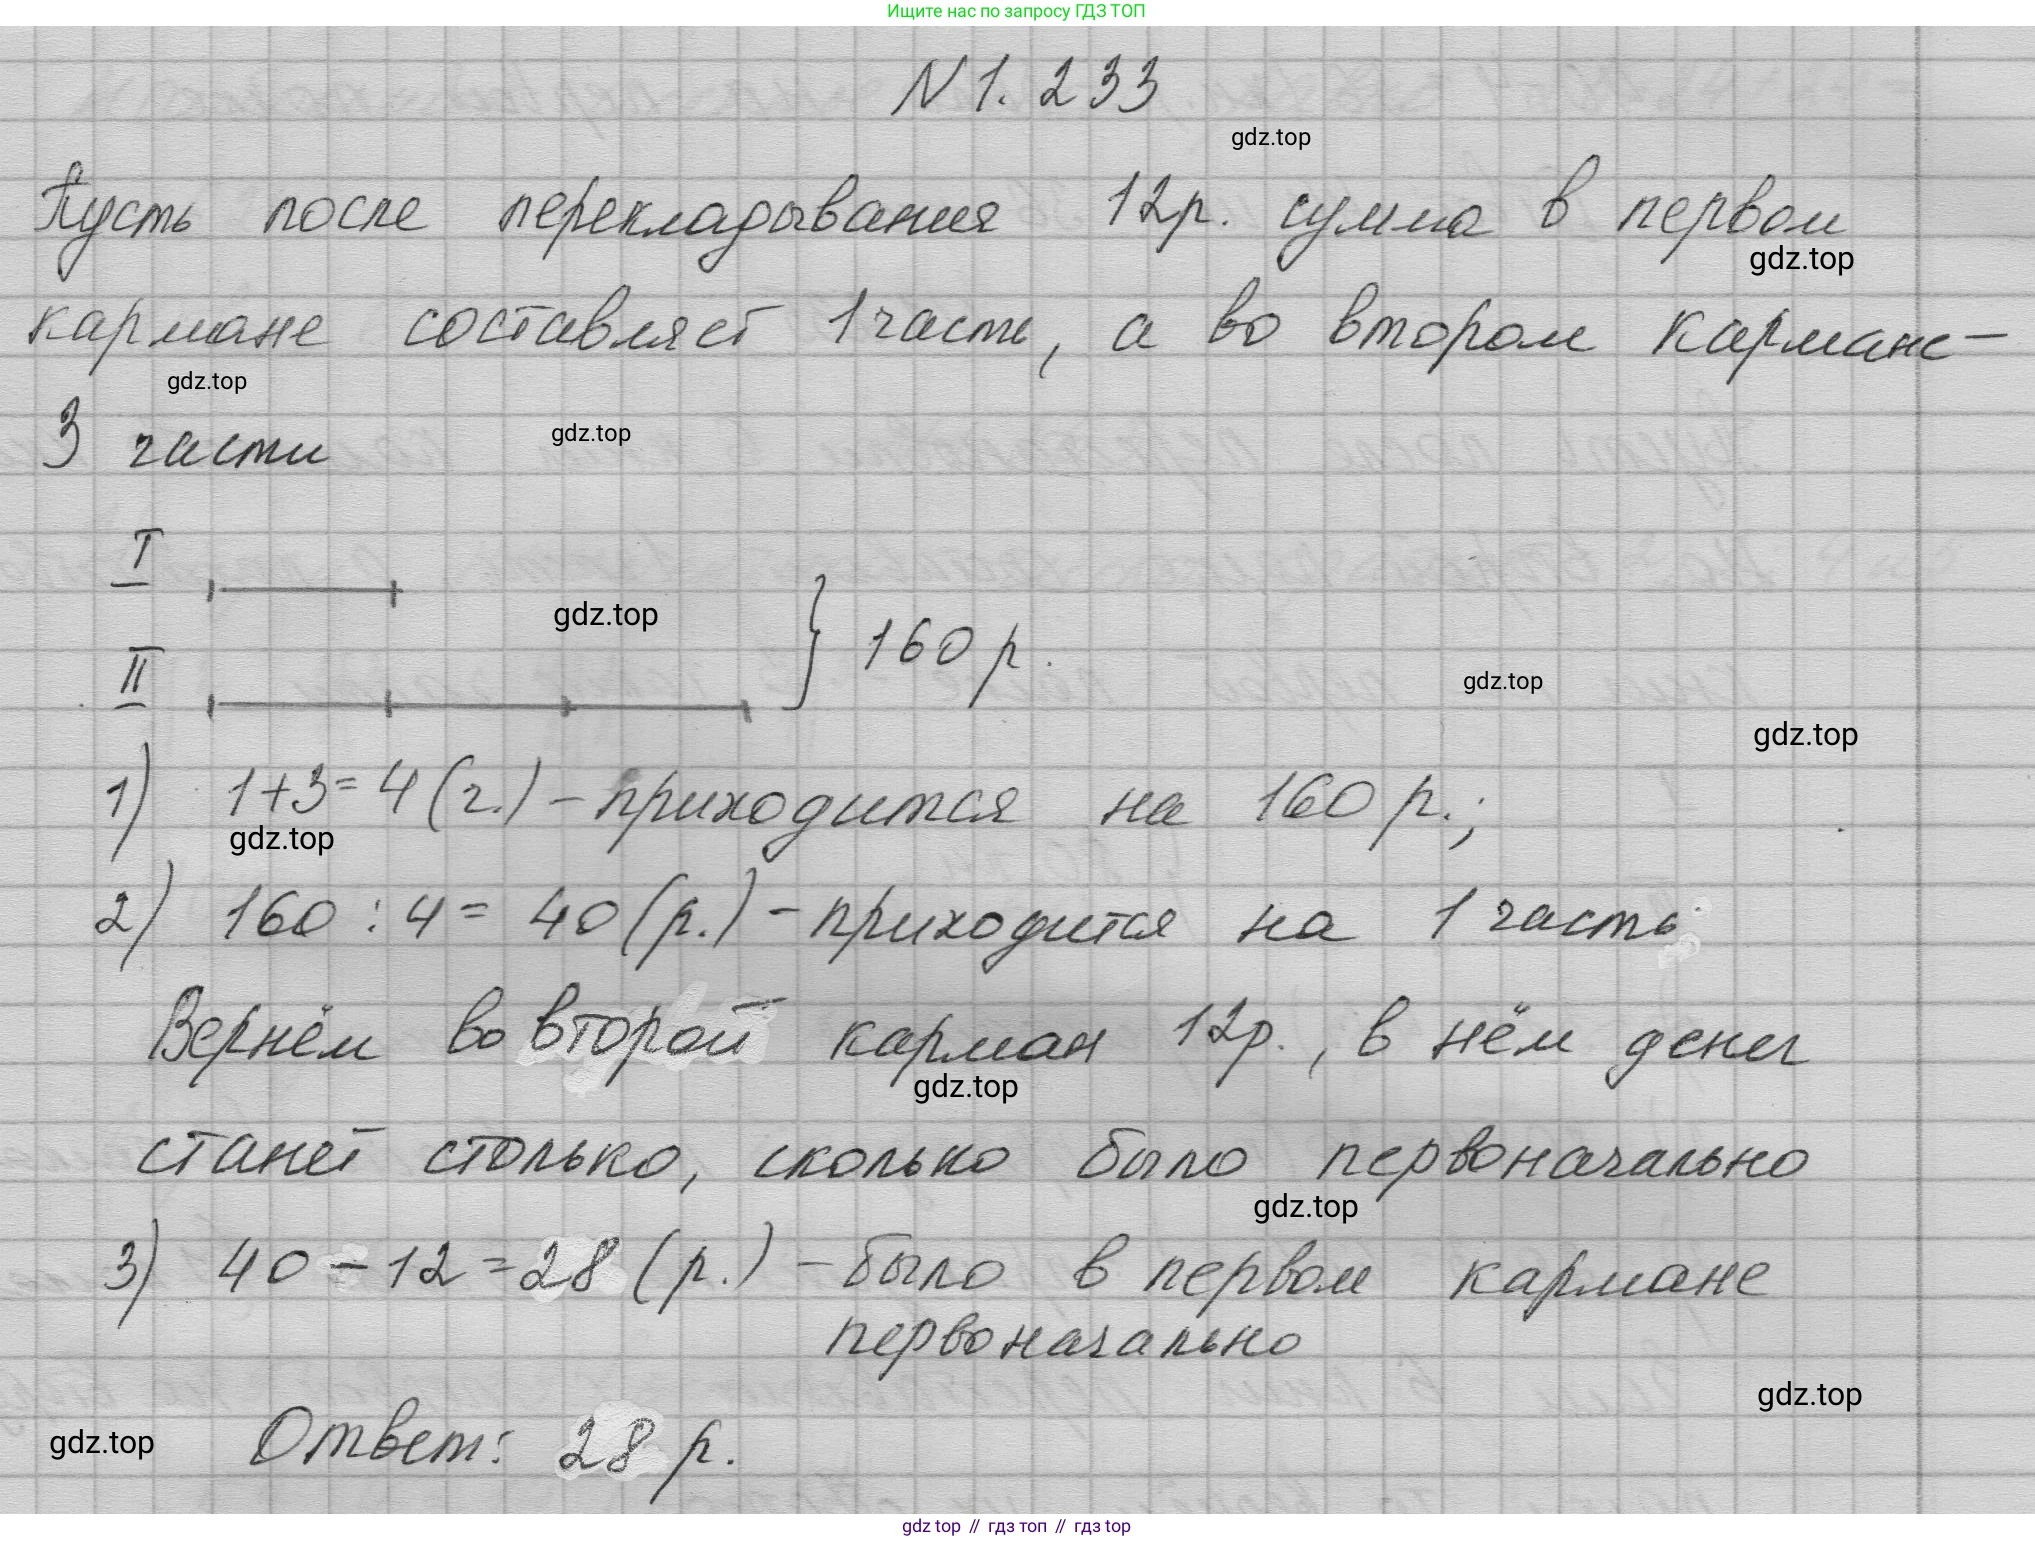 Ищите нас по запросу ГДЗ ТОП
N 1. 233
gdz.top
Пусть после перекладывания 12р. сумма в первом
gdz.top
кармане составляет 1 часть, а во втором кармане-
gdz.top
3 части
gdz.top
I
gdz.top
} 160 р.
II
gdz.top
gdz.top
1) 1+3=4 (ч.) - приходится на 160 р.;
gdz.top
2) 160 : 4 = 40 (р.) - приходится на 1 часть
Вернём во второй карман 12р., в нём денег
gdz.top
станет столько, сколько было первоначально
gdz.top
3) 40 - 12 = 28 (р.) - было в первом кармане
первоначально
gdz.top
gdz.top
Ответ: 28 р.
gdz top // гдз топ // гдз top